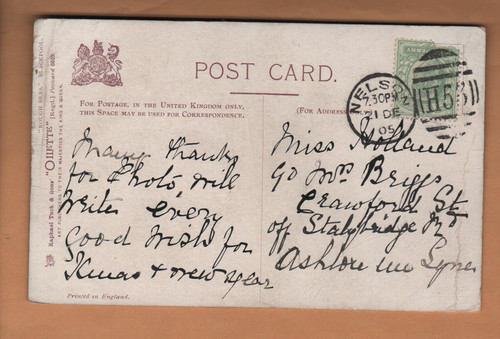 POST CARD.
FOR POSTAGE, IN THE UNITED KINGDOM ONLY,
THIS SPACE MAY BE USED FOR CORRESPONDENCE.
(FOR ADDRESS
Raphael Tuck & Sons' "OILETTE" [Regd.] Postcard
"ROUGH SEAS," BLACKPOOL.
ART PUBLISHERS TO THEIR MAJESTIES THE KING & QUEEN.
Many thanks
for Photo, will
write, every
good wish for
Xmas & new year
Printed in England.
NELSON
7.30PM
21 DE
05
H5
Miss Holland
c/o Mrs Briggs
Crawford St
off Stalybridge Rd
Ashton un Lyne